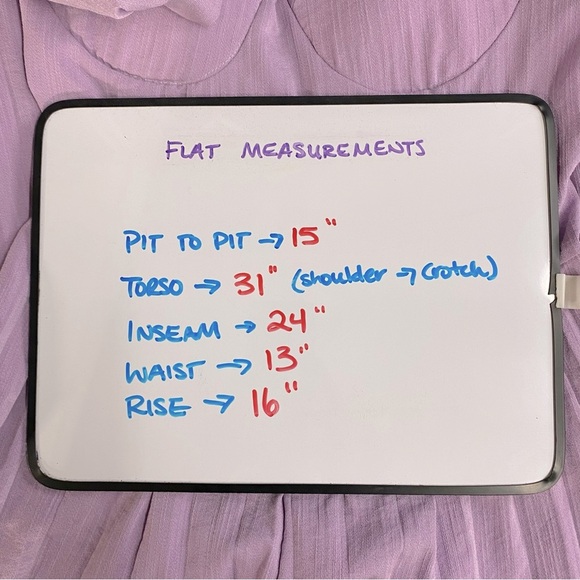 FLAT MEASUREMENTS
PIT TO PIT → 15"
TORSO → 31" (shoulder → crotch)
INSEAM → 24"
WAIST → 13"
RISE → 16"